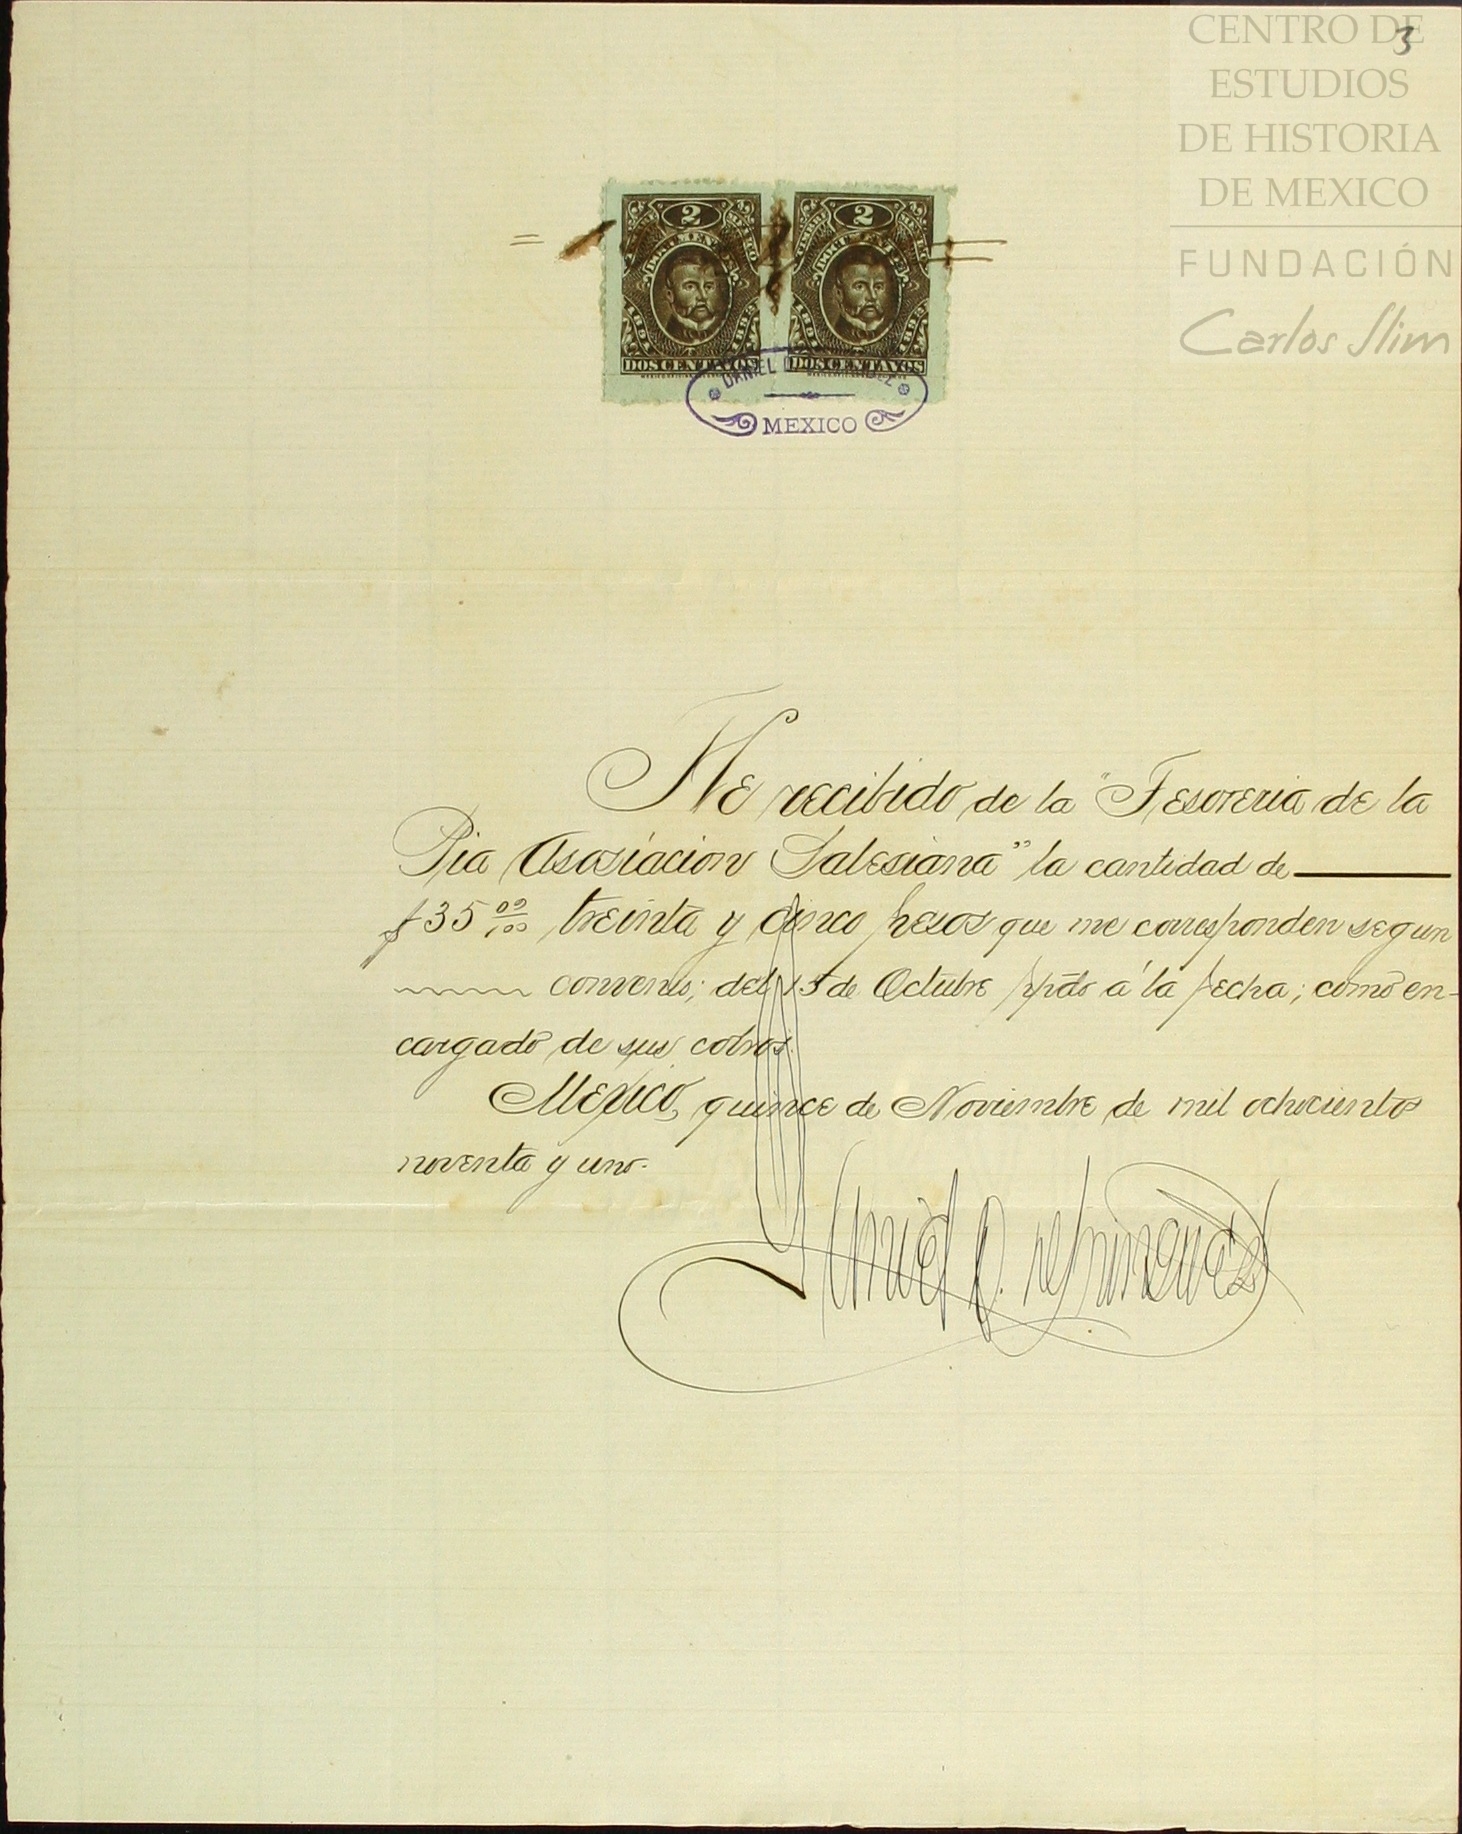 CENTRO DE
ESTUDIOS
DE HISTORIA
DE MEXICO
FUNDACIÓN
Carlos Slim
3
2 2
DOCUMENTOS DOCUMENTOS
MEXICO
DOS CENTAVOS DOS CENTAVOS
DANIEL
MEXICO
He recibido de la "Tesoreria de la
Pia Asosiacion Salesiana" la cantidad de
$35 00/100 treinta y cinco pesos que me corresponden segun
convenio; del 15 de Octubre ppdo á la fecha; como en-
cargado de sus cobros.
Mexico, quince de Noviembre de mil ochocientos
noventa y uno.